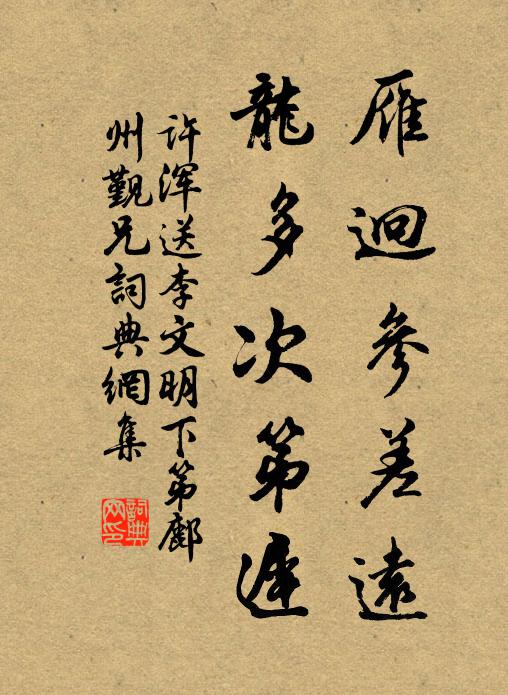 雁迴參差遠
龍多次第遲
許渾送李文明下第鄜
州觀兄詞典網集
詞典
网印